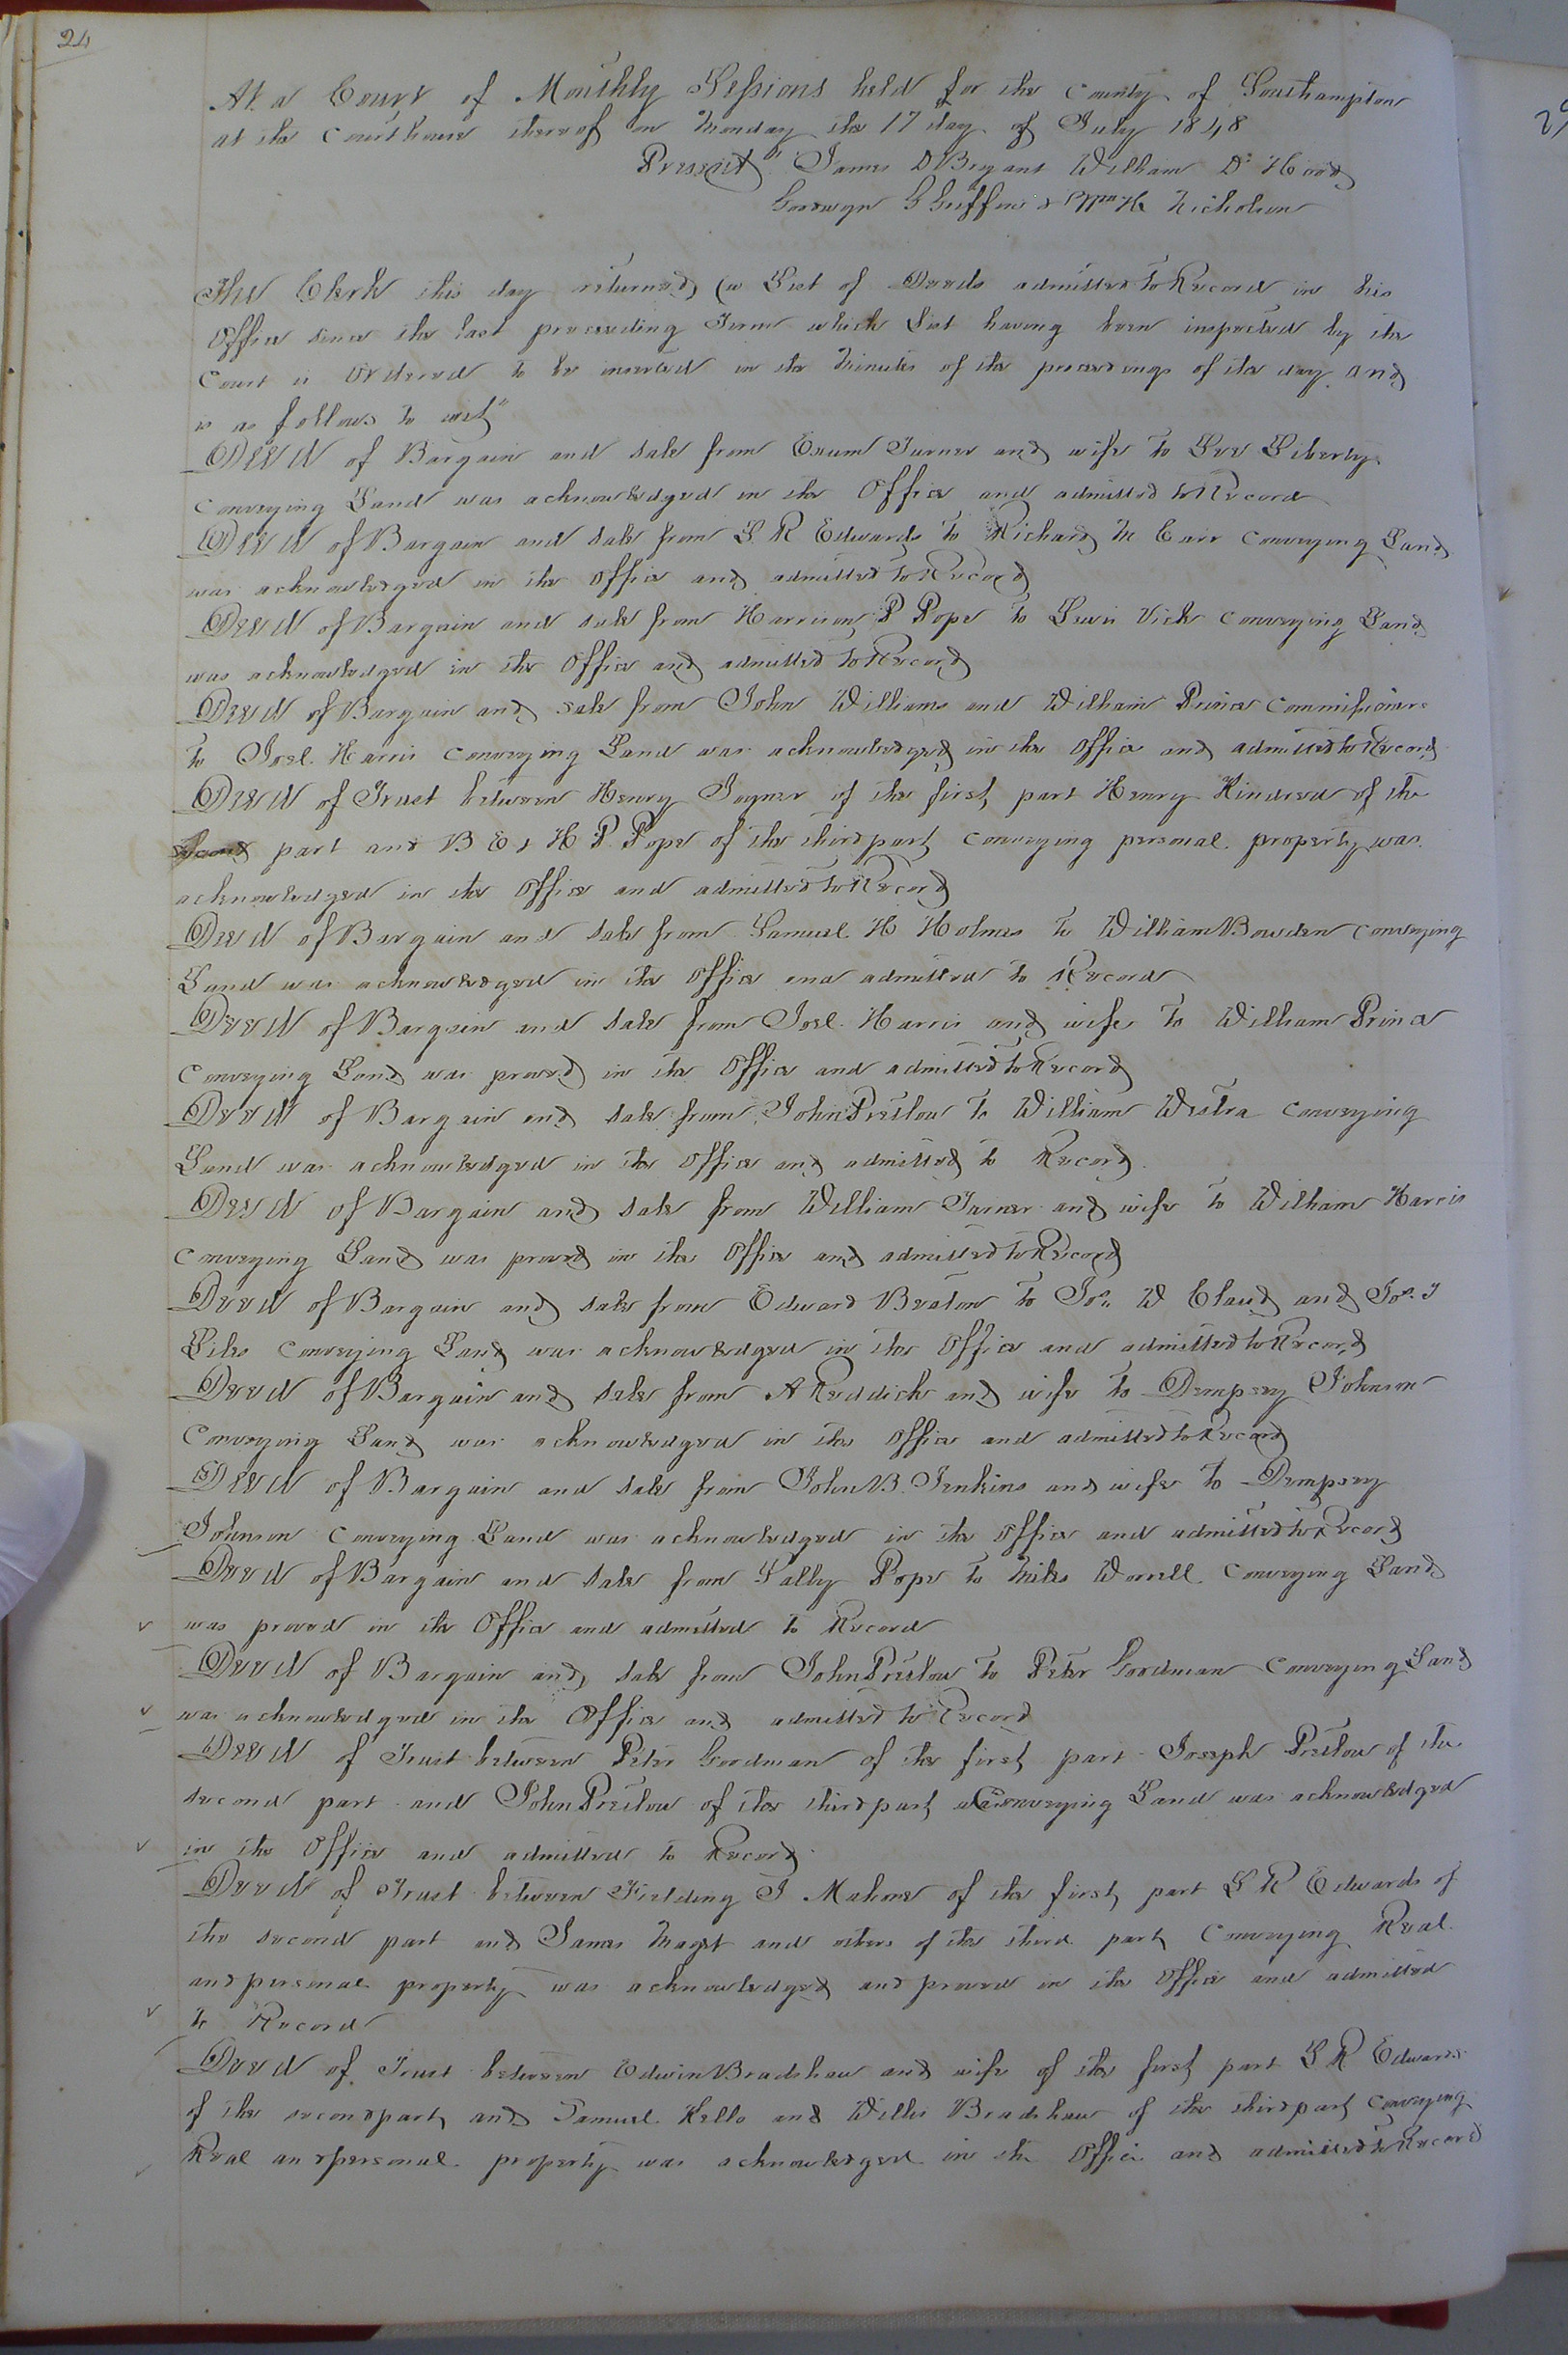 24
At a Court of Monthly Sessions held for the County of Southampton
at the Courthouse thereof on Monday the 17 day of July 1848
Present James D Bryant William D Hood
Goodwyn G Griffin & Wm H Nicholson
The Clerk this day returned a List of Deeds admitted to Record in his
Office since the last preceeding Term which List having been inspected by the
Court is Ordered to be inserted in the Minutes of the proceedings of the day and
is as follows to wit"
Deed of Bargain and Sale from Exum Turner and wife to Lee Liberty
conveying Land was acknowledged in the Office and admitted to Record
Deed of Bargain and Sale from L R Edwards to Richard M Carr Conveying Land
was acknowledged in the Office and admitted to Record
Deed of Bargain and Sale from Harrison P Pope to Lewis Vick Conveying Land
was acknowledged in the Office and admitted to Record
Deed of Bargain and Sale from John Williams and William Prince Commissioners
to Joel Harris Conveying Land was acknowledged in the Office and admitted to Record
Deed of Trust between Henry Joyner of the first part Henry Kindred of the
Second part and B E & H P Pope of the third part Conveying personal property was
acknowledged in the Office and admitted to Record
Deed of Bargain and Sale from Samuel H Holmes to William Bowden Conveying
Land was acknowledged in the Office and admitted to Record
Deed of Bargain and Sale from Joel Harris and wife To William Prince
Conveying Land was proved in the Office and admitted to Record
Deed of Bargain and Sale from John Pretlow To William Westra Conveying
Land was acknowledged in the Office and admitted to Record
Deed of Bargain and Sale from William Turner and wife to William Harris
Conveying Land was proved in the Office and admitted to Record
Deed of Bargain and Sale from Edward Beaton to Jos. W Claud and Jos. J
Liles Conveying Land was acknowledged in the Office and admitted to Record
Deed of Bargain and Sale from A Reddick and wife To Dempsey Johnson
Conveying Land was acknowledged in the Office and admitted to Record
Deed of Bargain and Sale from John B. Jenkins and wife To Dempsey
Johnson Conveying Land was acknowledged in the Office and admitted to Record
Deed of Bargain and Sale from Sally Pope to Miles Worrell Conveying Land
was proved in the Office and admitted To Record
Deed of Bargain and Sale from John Pretlow To Peter Goodman Conveying Land
was acknowledged in the Office and admitted to Record
Deed of Trust between Peter Goodman of the first part Joseph Pretlow of the
second part and John Pretlow of the third part Conveying Land was acknowledged
in the Office and admitted to Record
Deed of Trust between Fielding J Mahone of the first part L R Edwards of
the second part and James Maget and others of the third part Conveying Real
and personal property was acknowledged and proved in the Office and admitted
to Record
Deed of Trust between Edwin Bradshaw and wife of the first part L R Edwards
of the second part and Samuel Kello and Willis Bradshaw of the third part Conveying
Real and personal property was acknowledged in the Office and admitted to Record